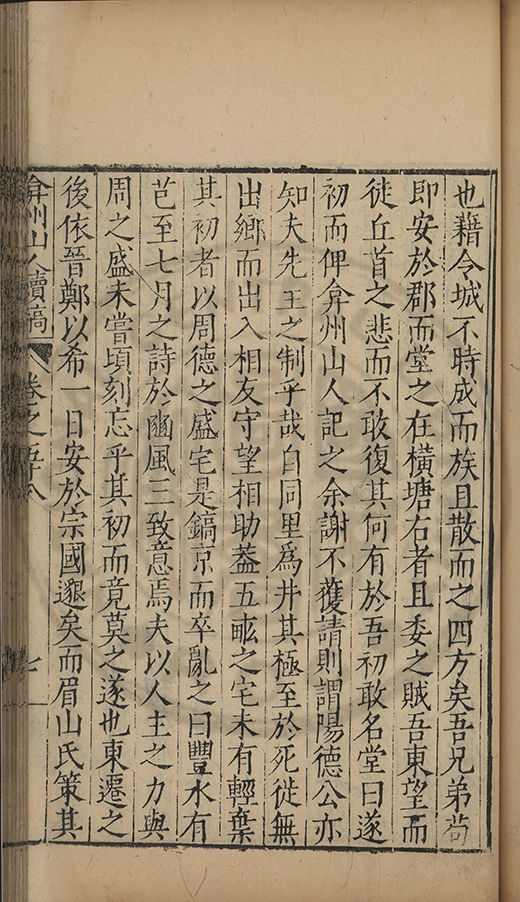 也藉令城不時成而族且散而之四方矣吾兄弟茍
即安於郡而堂之在橫塘右者且委之賊吾東望而
徒丘首之悲而不敢復其何有於吾初敢名堂曰遂
初而俾弇州山人記之余謝不獲請則謂陽德公亦
知夫先王之制乎哉自同里爲井其極至於死徙無
出鄉而出入相友守望相助葢五畝之宅未有輕棄
其初者以周德之盛宅是鎬京而卒亂之曰豐水有
芑至七月之詩於豳風三致意焉夫以人主之力與
周之盛未嘗頃刻忘乎其初而竟莫之遂也東遷之
後依晉鄭以希一日安於宗國邈矣而眉山氏策其
弇州山人續稿 卷之五十八 七